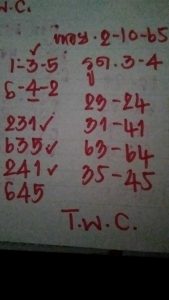 พ.C.
หวย.2-10-65
1-3-5 รูด.3-4
6-4-2
23-24
231✓ 31-41
635✓ 63-64
241✓ 35-45
645
T.W.C.